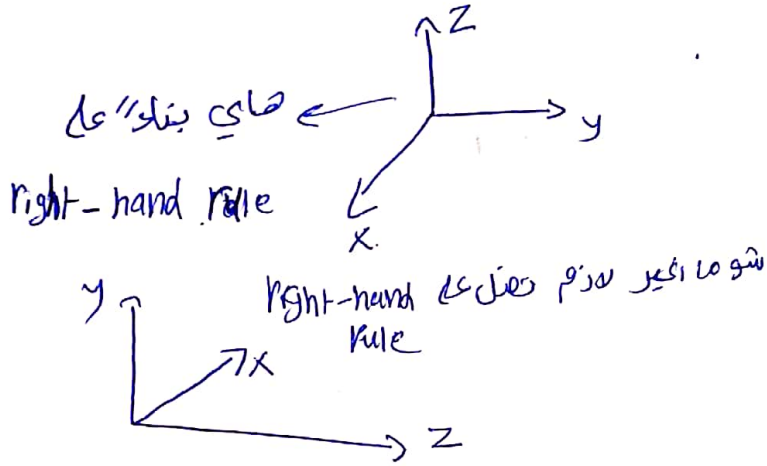 Z
هاي بناءً على
y
right-hand rule
X
شو ما اغير لازم تضل على right-hand
rule
y
X
Z